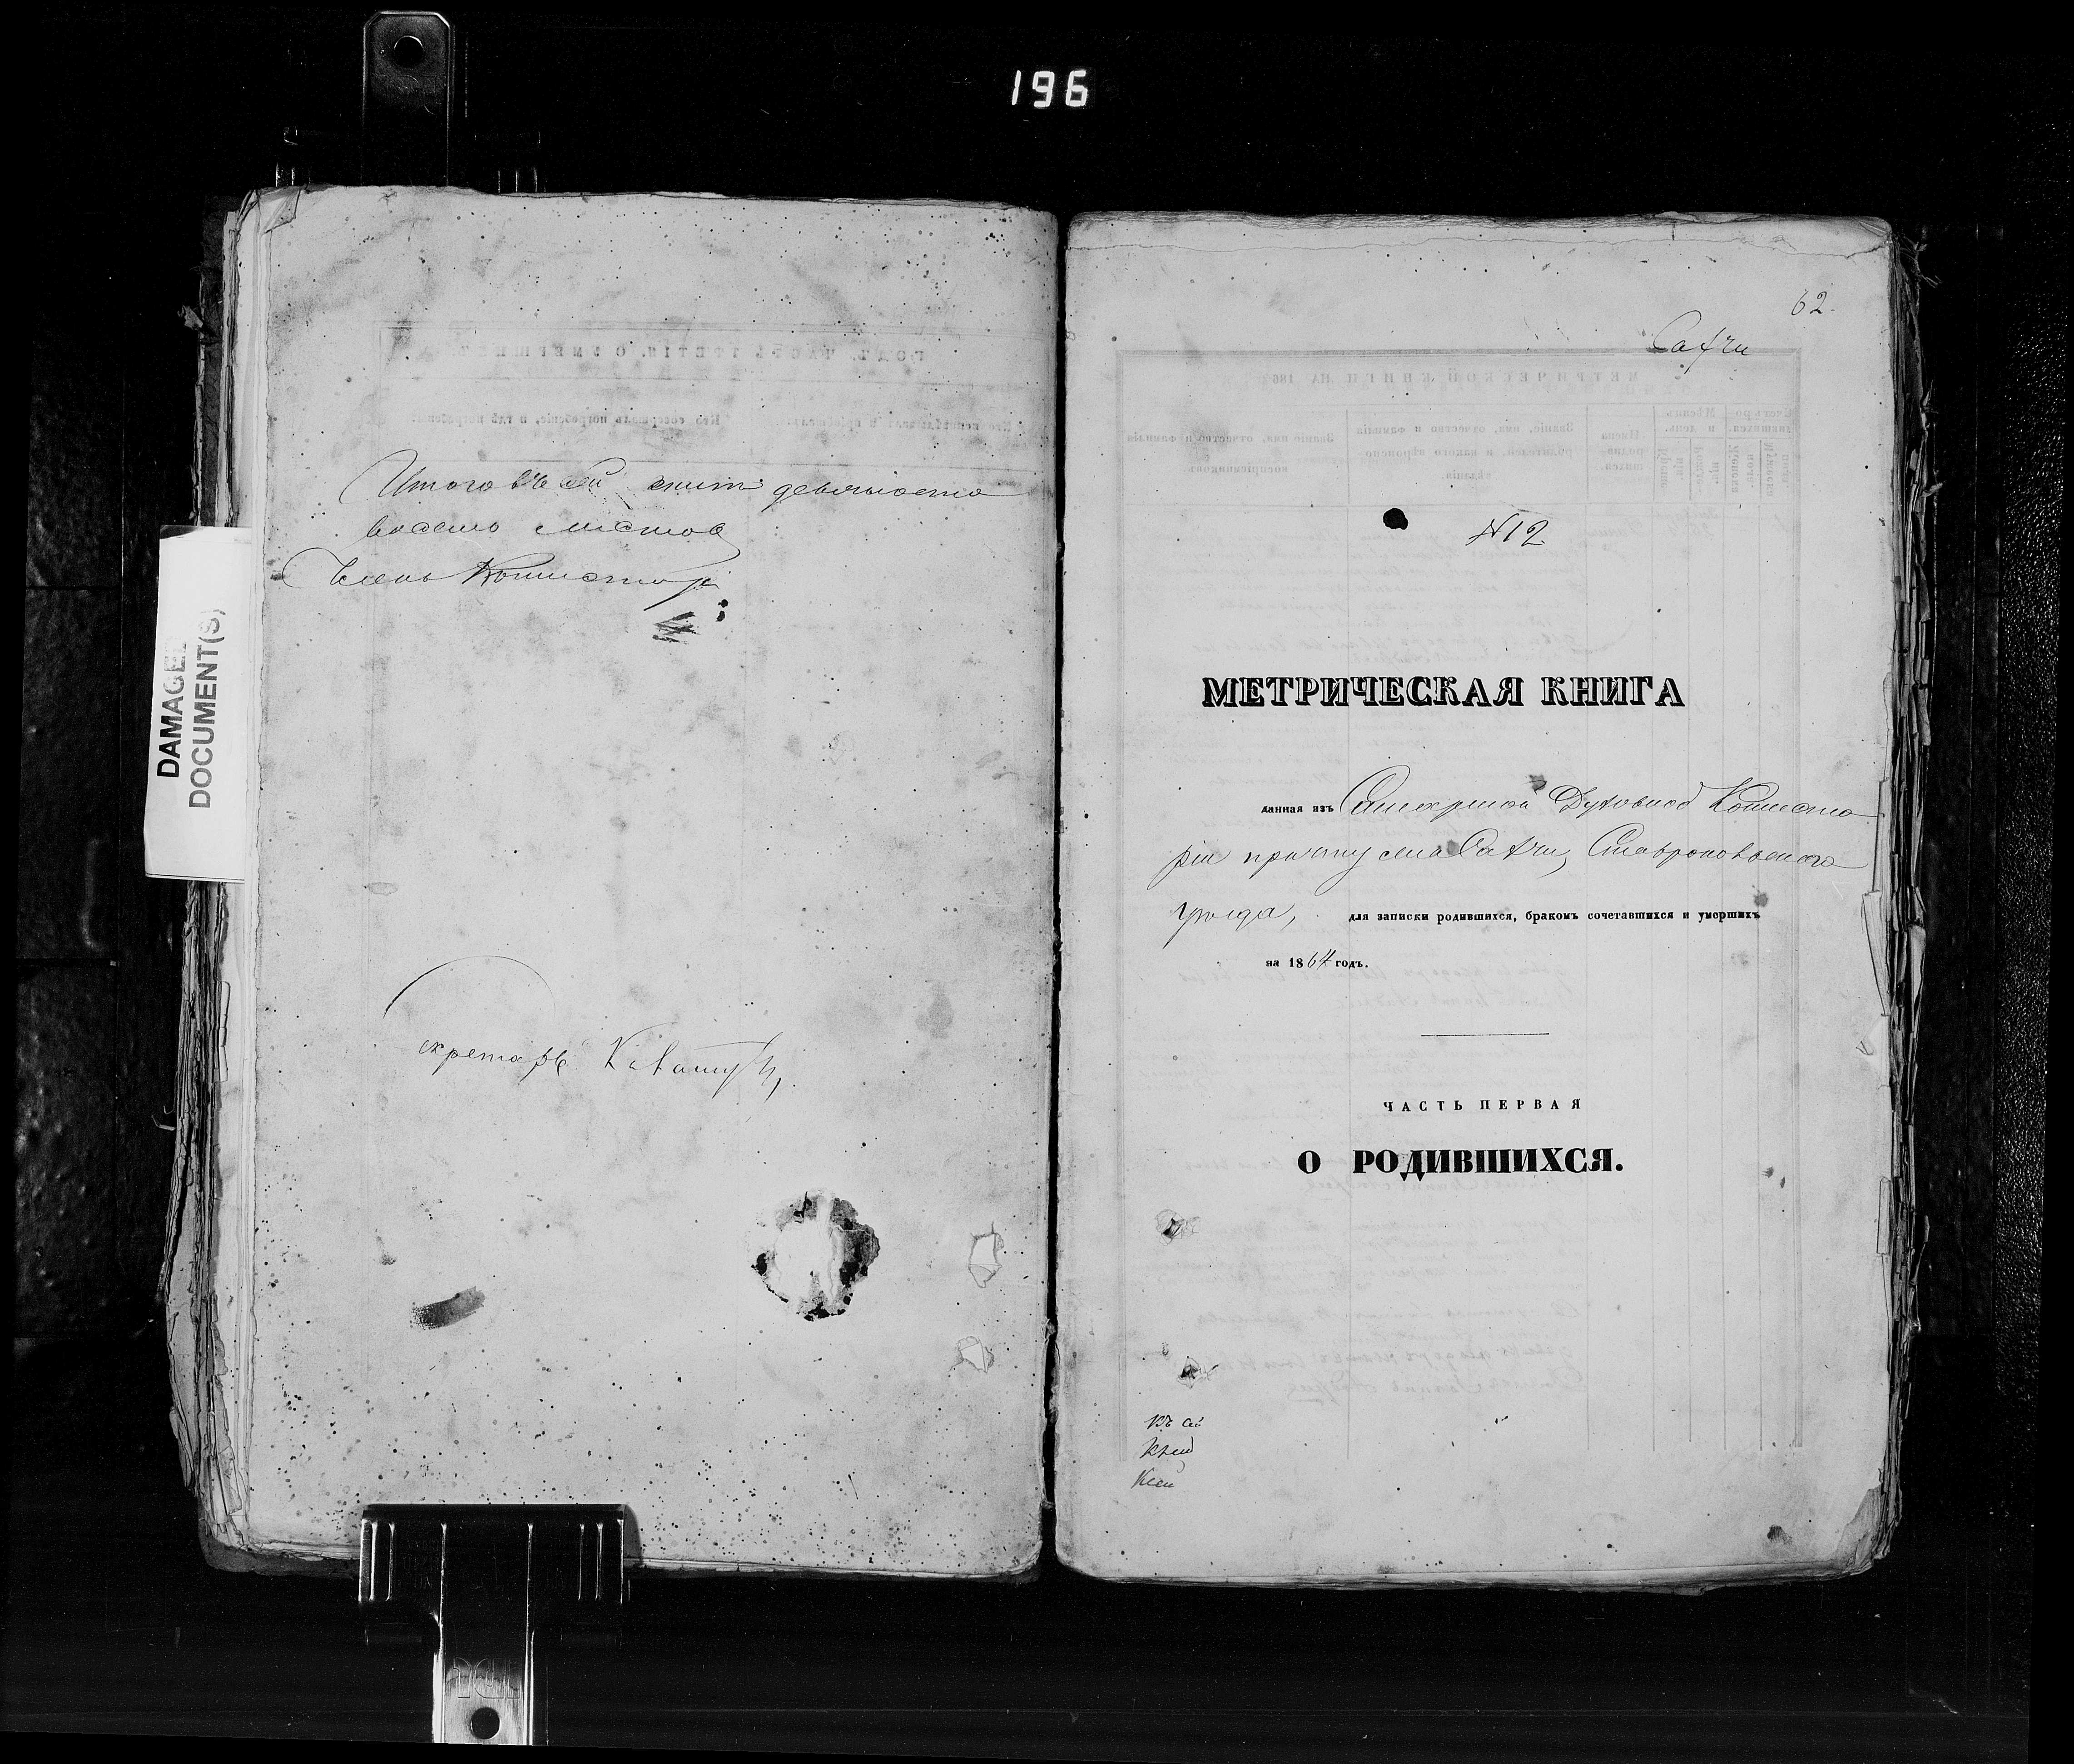 196
DAMAGED
DOCUMENT(S)
Итого въ сей книгѣ девяносто
восемь листов
Членъ Консистор
екретарь
62.
Сахчи
№12
МЕТРИЧЕСКАЯ КНИГА
данная изъ Самарской Духовной Консисто
ріи причту села Сахчи, Ставропольскаго
уѣзда, для записки родившихся, бракомъ сочетавшихся и умершихъ
на 1864 годъ.
ЧАСТЬ ПЕРВАЯ
О РОДИВШИХСЯ.
Къ сей